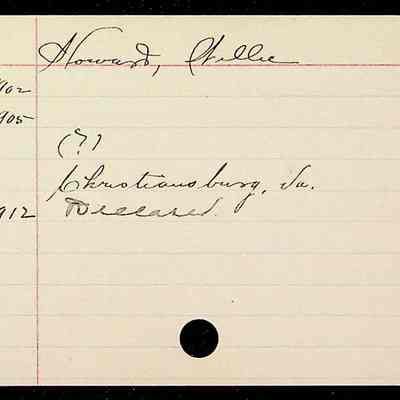 Howard, Willie
902
905
(?)
Christiansburg, Va.
912 Deceased.